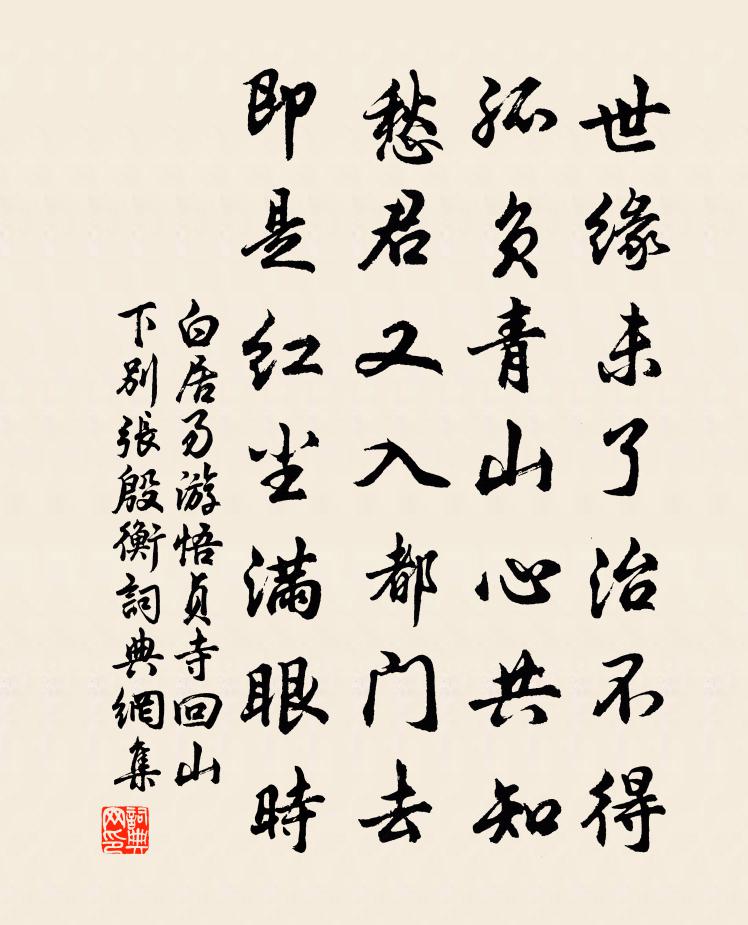 世缘未了治不得
孤负青山心共知
愁君又入都门去
即是红尘满眼時
白居易游悟貞寺回山
下别張殷衡詞典網集
詞典
网印